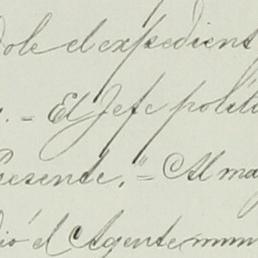 dole el expedient
. = El Jefe polít
Presente." = Al ma
dió el Agente mun